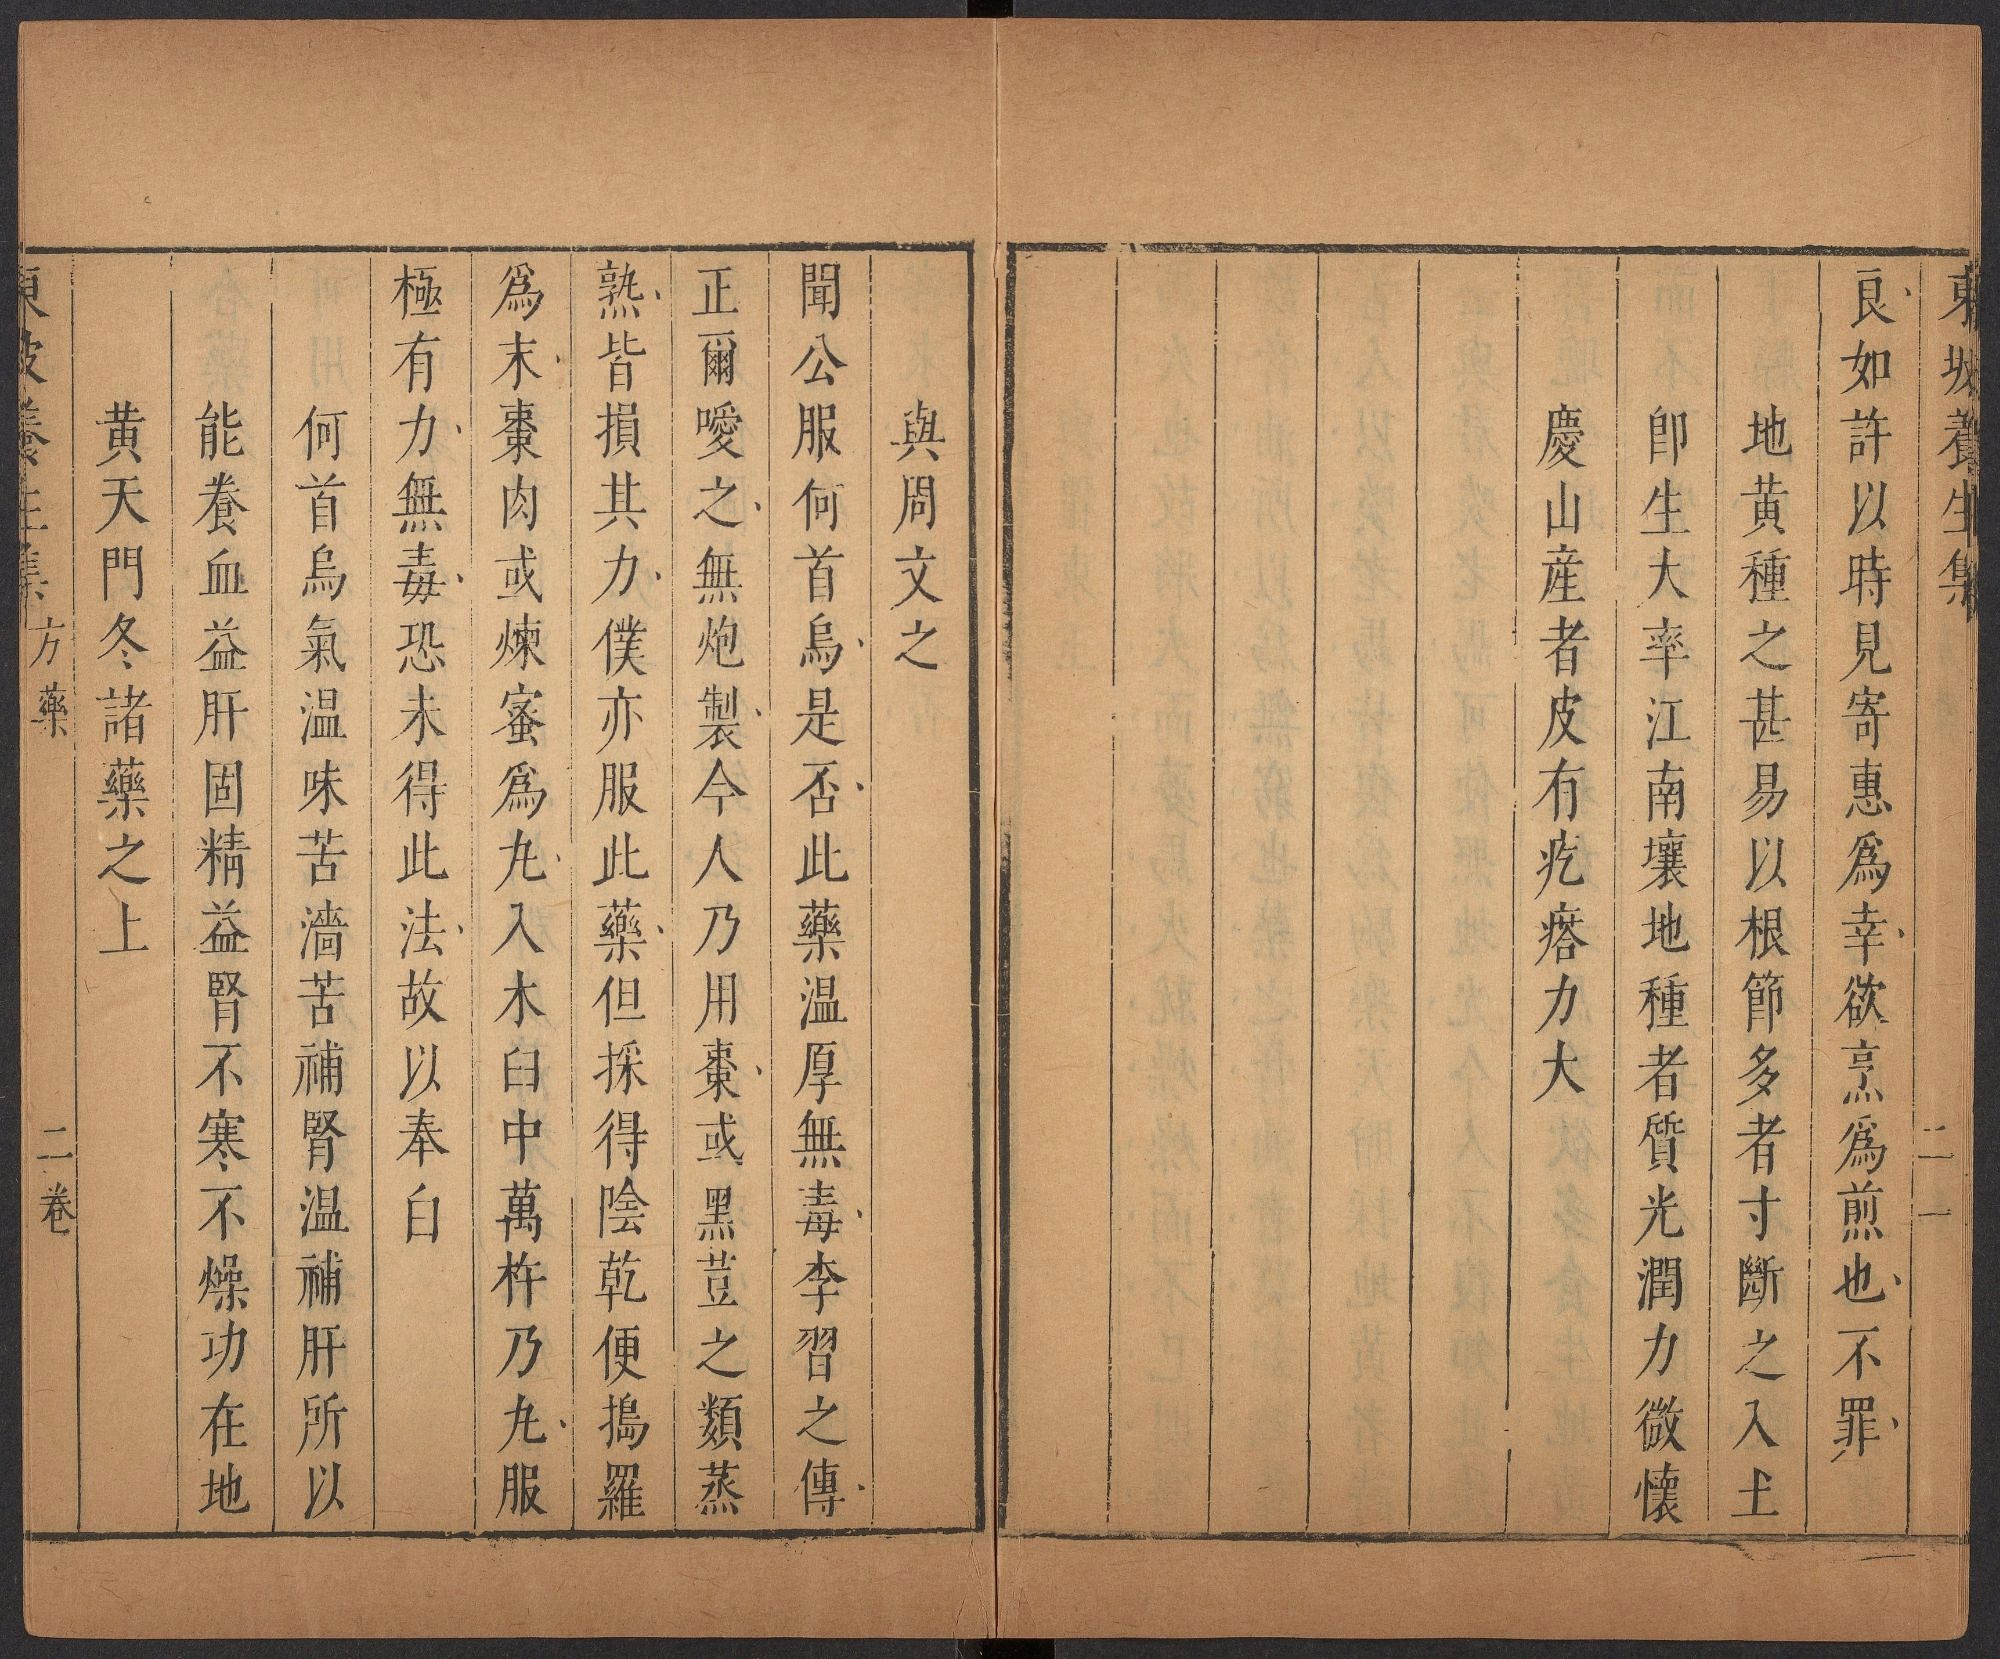 東坡養生集
二 一
良如許以時見寄惠爲幸欲烹爲煎也不罪
地黄種之甚易以根節多者寸斷之入土
卽生大率江南壤地種者質光潤力微懷
慶山産者皮有疙瘩力大
與周文之
聞公服何首烏是否此藥温厚無毒李習之傳
正爾啖之無炮製今人乃用棗或黑荳之類蒸
熟皆損其力僕亦服此藥但採得陰乾便搗羅
爲末棗肉或煉蜜爲丸入木臼中萬杵乃丸服
極有力無毒恐未得此法故以奉白
何首烏氣温味苦濇苦補腎温補肝所以
能養血益肝固精益腎不寒不燥功在地
黄天門冬諸藥之上
東坡養生集 方藥 二卷